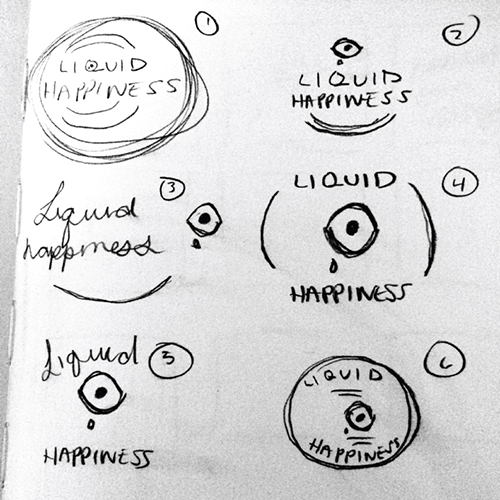 1
LIQUID
HAPPINESS
2
LIQUID
HAPPINESS
3
Liquid
happiness
4
LIQUID
HAPPINESS
5
Liquid
HAPPINESS
6
LIQUID
HAPPINESS